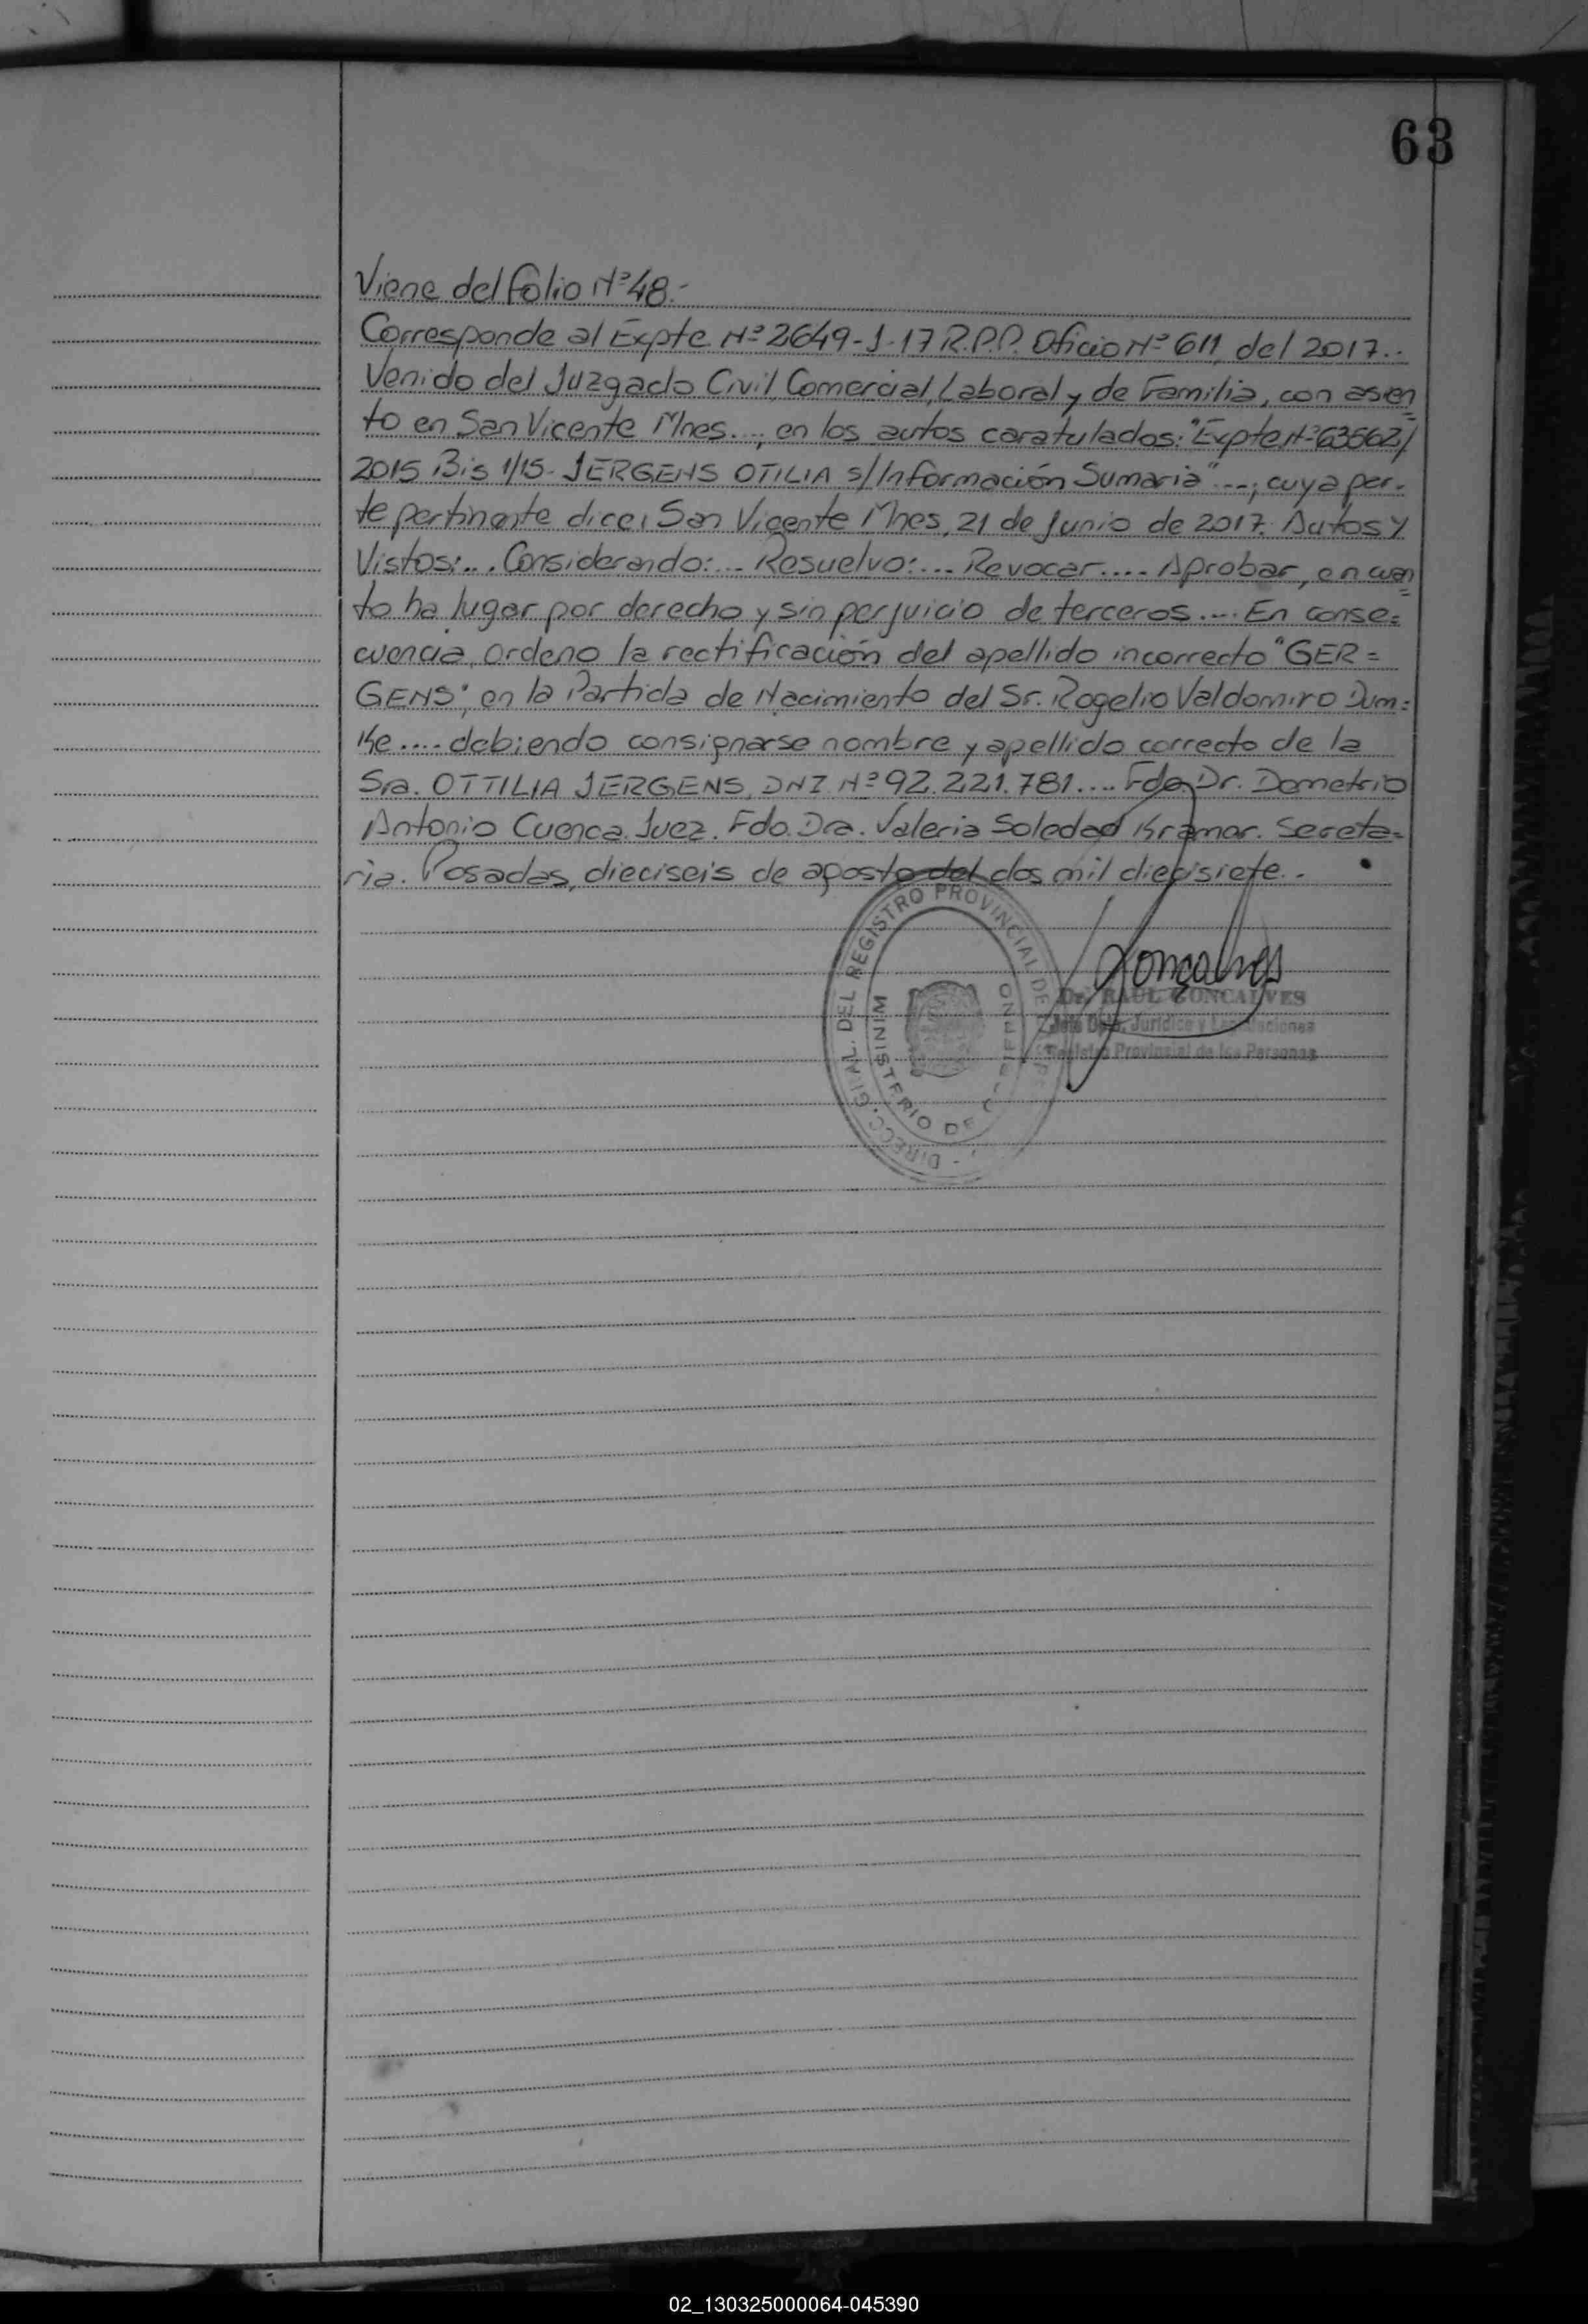 63
Viene del folio Nº 48.-
Corresponde al Expte. Nº 2649-J-17 R.P.P. Oficio Nº 611, del 2017..
Venido del Juzgado Civil, Comercial, Laboral y de Familia, con asien=
to en San Vicente Mnes...; en los autos caratulados: "Expte Nº 63562/
2015 Bis 1/15- JERGENS OTILIA s/Información Sumaria"...; cuya par-
te pertinente dice: San Vicente Mnes, 21 de Junio de 2017. Autos y
Vistos:... Considerando:... Resuelvo:... Revocar.... Aprobar, en cuan=
to ha lugar por derecho y sin perjuicio de terceros.... En conse=
cuencia, ordeno la rectificación del apellido incorrecto "GER=
GENS", en la Partida de Nacimiento del Sr. Rogelio Valdomiro Dum=
ke.... debiendo consignarse nombre y apellido correcto de la
Sra. OTTILIA JERGENS, DNI. Nº 92.221.781.... Fdo. Dr. Demetrio
Antonio Cuenca. Juez. Fdo. Dra. Valeria Soledad Kramer. Secreta=
ria. Posadas, dieciseis de agosto del dos mil diecisiete..
DIRECC. GRAL. DEL REGISTRO PROVINCIAL DE LAS
MINISTERIO DE
Gonçalves
Dr. RAUL GONCALVES
Jefe Dpto. Jurídico y
Registro Provincial de las Personas
02_130325000064-045390